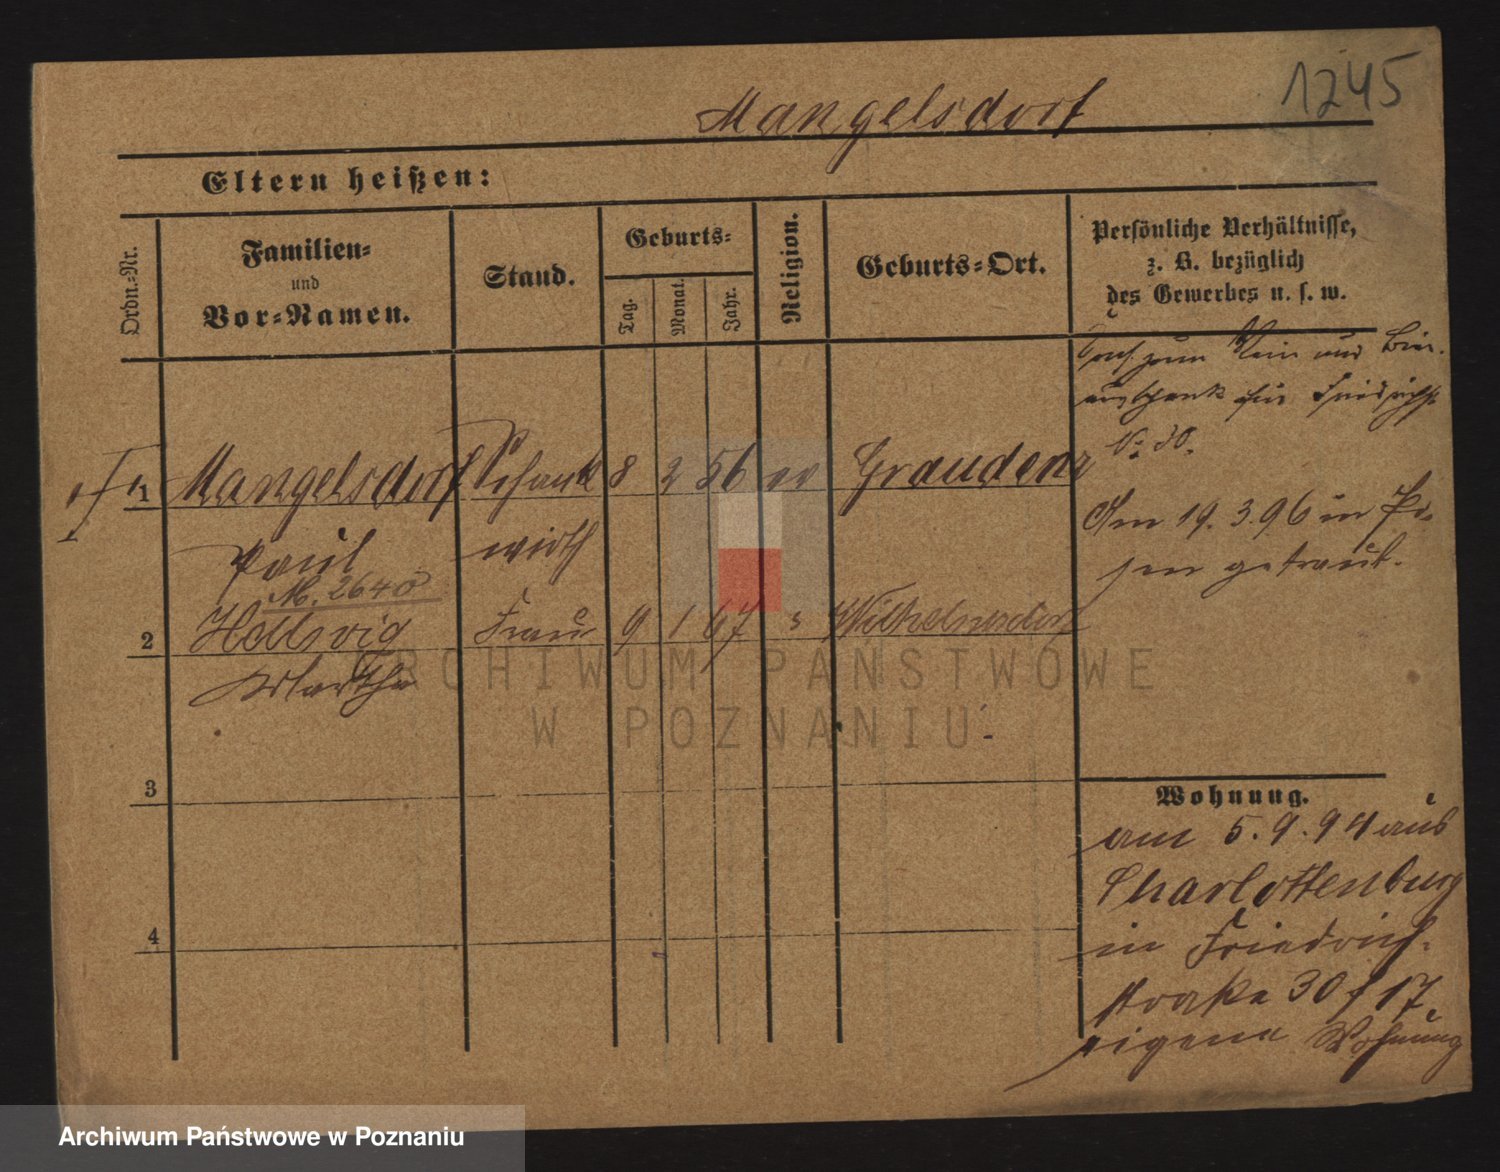 1245
Mangelsdorf
Eltern heißen:
Ordn.-Nr.
Familien-
und
Vor-Namen.
Stand.
Geburts-
Tag.
Monat.
Jahr.
Religion.
Geburts-Ort.
Persönliche Verhältnisse,
z. B. bezüglich
des Gewerbes u. s. w.
Conf. zum Wein und Bier-
ausschank für Friedrichst.
No 30.
1 Mangelsdorf Schank 8 2 56 ev Graudenz
Paul wirth
M. 2640
Am 19. 3. 96 in Po-
sen getraut.
2 Hellwig Frau 9 1 67 " Wilhelmsdorf
Martha
3
4
Wohnung.
am 5. 9. 94 aus
Charlottenburg
in Friedrich-
straße 30 f 17
eigene Wohnung
ARCHIWUM PAŃSTWOWE
W POZNANIU
Archiwum Państwowe w Poznaniu